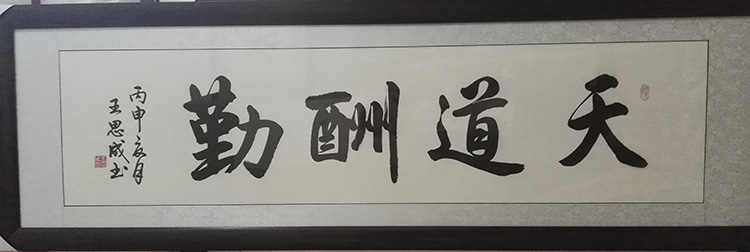 天道酬勤
丙申夏月
王思成书